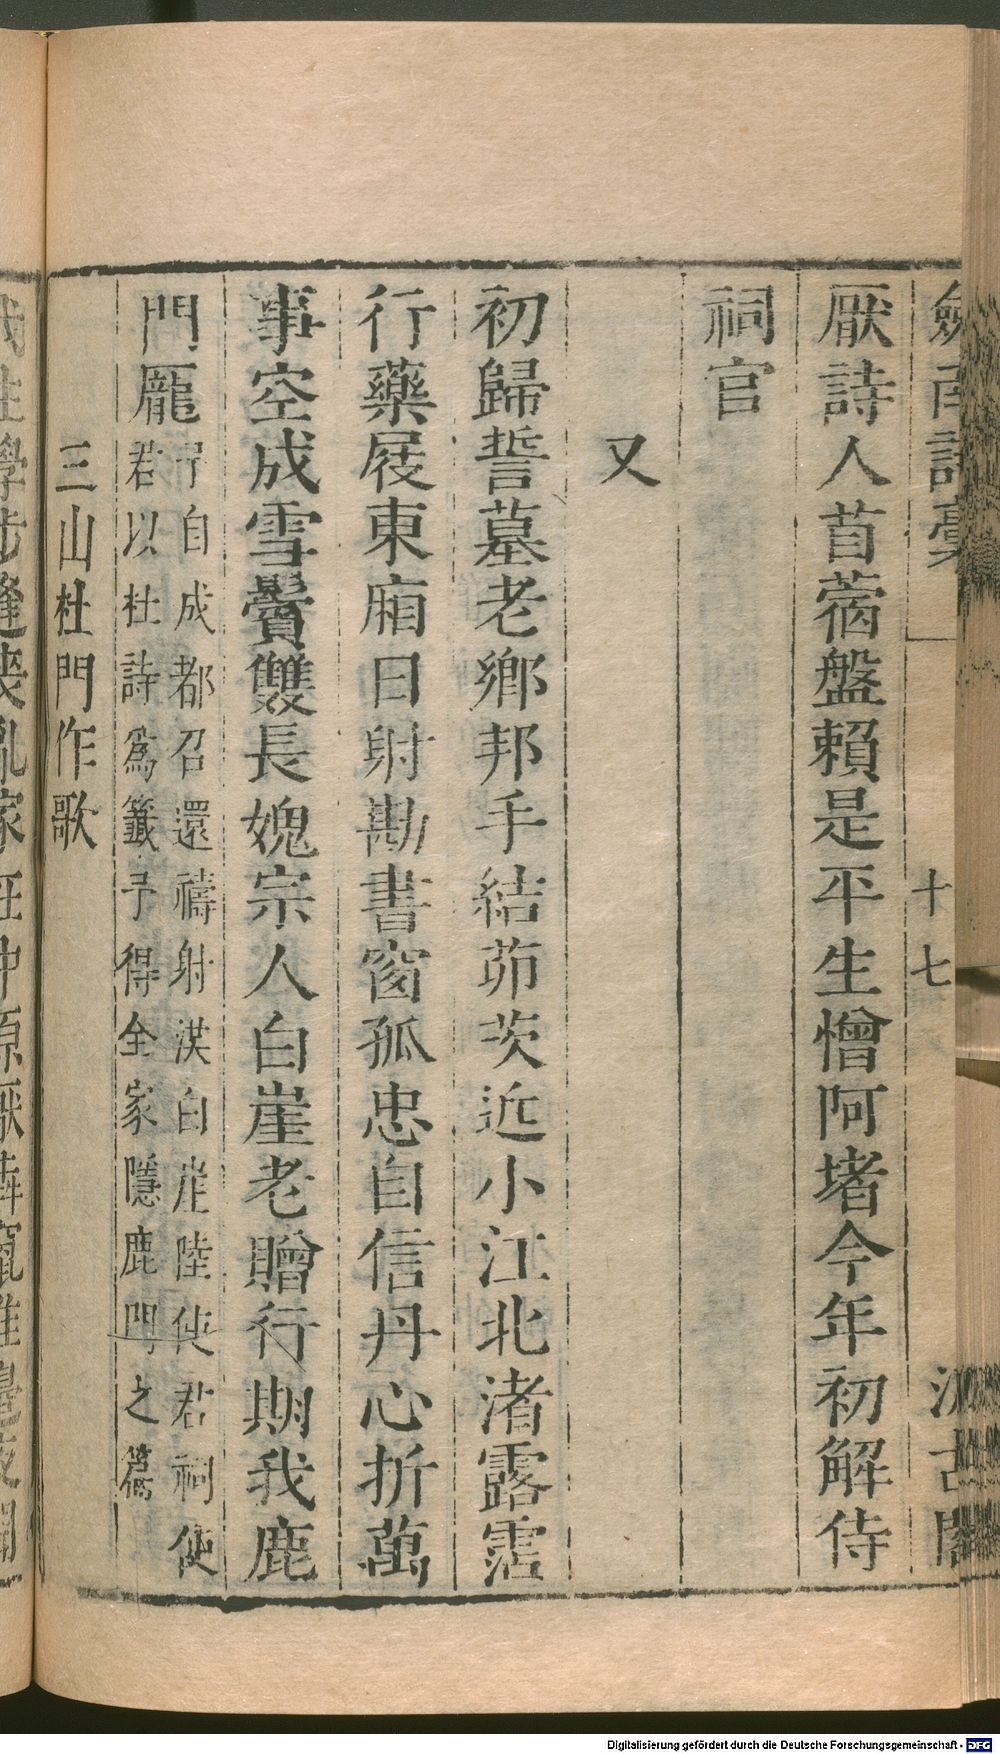 劒南詩槀
十七
汲古閣
厭詩人苜蓿盤賴是平生憎阿堵今年初解侍
祠官
又
初歸誓墓老鄉邦手結茆茨近小江北渚露霑
行藥屐東廂日射勘書窗孤忠自信丹心折萬
事空成雪鬢雙長媿宗人白崖老贈行期我鹿
門龎
予自成都召還禱射洪白崖陸使君祠使
君以杜詩爲籤予得全家隱鹿門之篇
三山杜門作歌
Digitalisierung gefördert durch die Deutsche Forschungsgemeinschaft - DFG